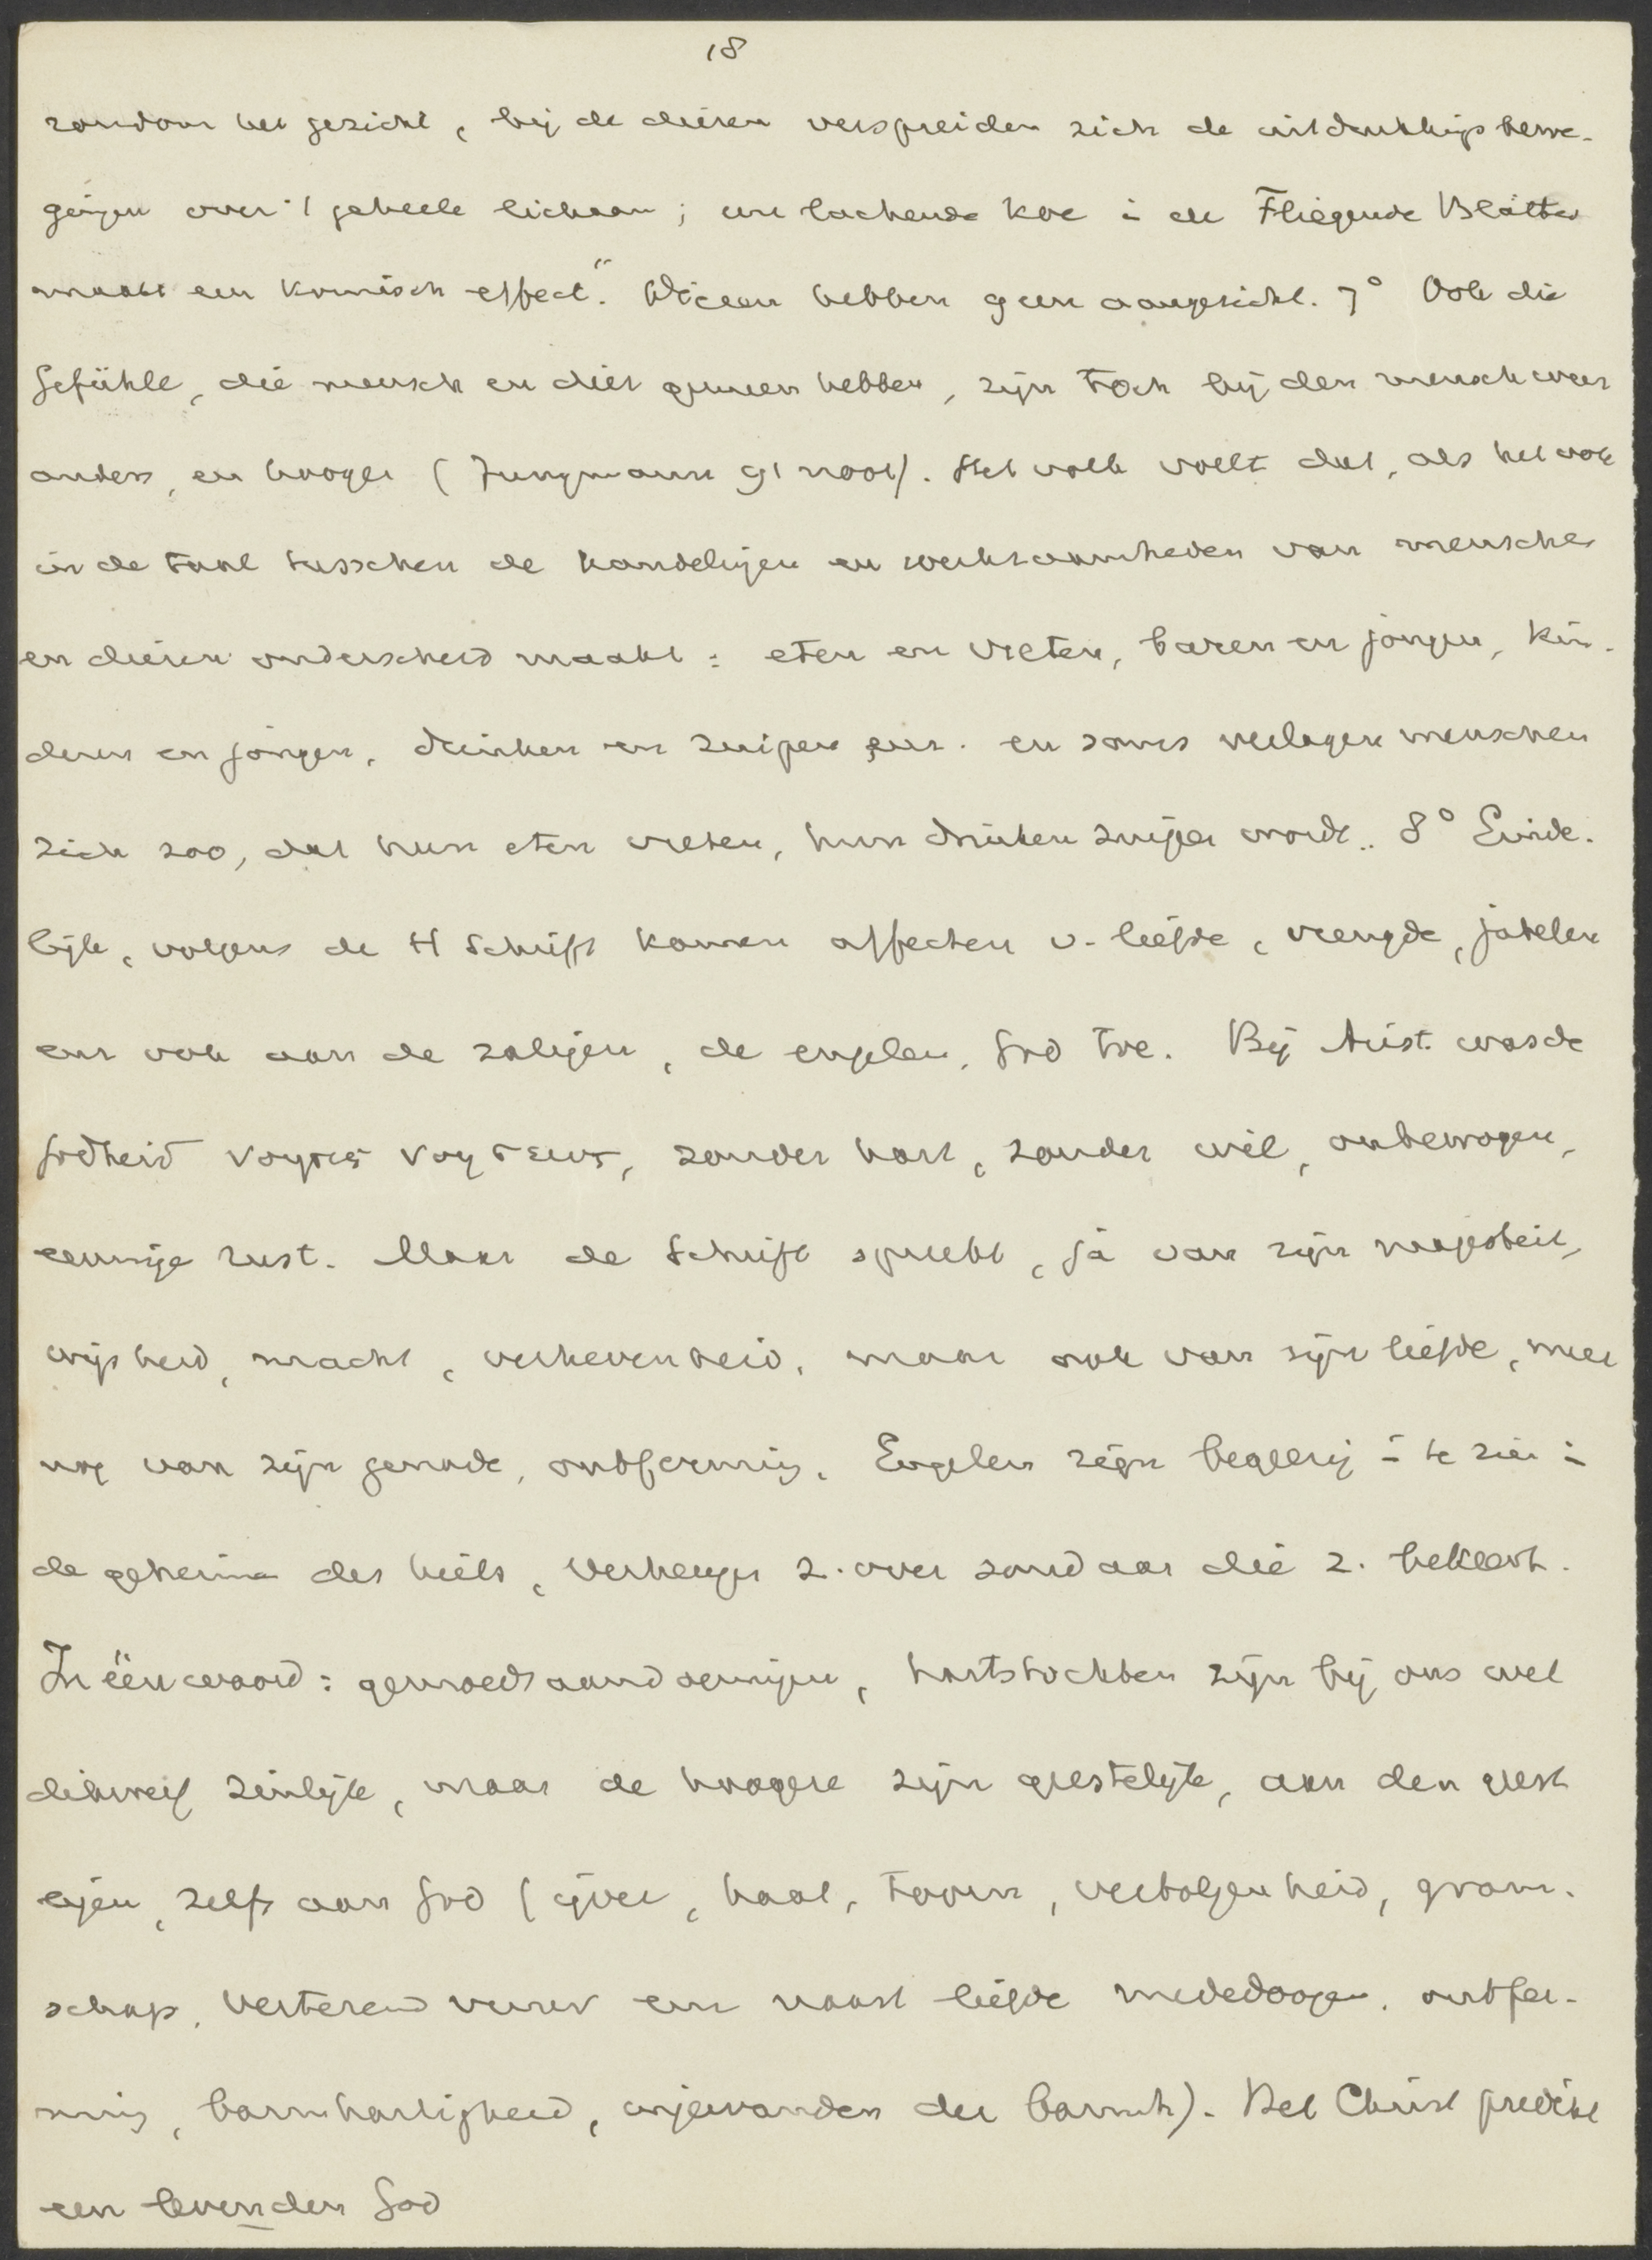 18
rondom het gezicht, bij de dieren verspreiden zich de uitdrukkingsbewe-
gingen over 't geheele lichaam; een lachende koe in de Fliegende Blätter
maakt een komisch effect". Dieren hebben geen aangezicht. 7° Ook die
Gefühle, die mensch en dier gemeen hebben, zijn toch bij den mensch weer
anders, en hooger (Jungmann 91 noot). Het volk voelt dat, als het ook
in de taal tusschen de handelingen en werkzaamheden van menschen
en dieren onderscheid maakt: eten en vreten, baren en jongen, kin-
deren en jongen, drinken en zuipen enz. en soms verlagen menschen
zich zoo, dat hun eten vreten, hun drinken zuipen wordt.. 8° Einde-
lijk, volgens de H Schrift komen affecten v. liefde, vreugde, jubelen
enz ook aan de zaligen, de engelen, God toe. Bij Arist. was de
Godheid νοησις νοησεως, zonder hart, zonder wil, onbewogen,
eeuwige rust. Maar de Schrift spreekt, ja van zijn majesteit,
wijsheid, macht, verhevenheid, maar ook van zijn liefde, meer
nog van zijn genade, ontferming. Engelen zijn begeerig in te zien in
de geheimen des heils, verheugen z. over zondaar die z. bekeert.
In één woord: gemoedsaandoeningen, hartstochten zijn bij ons wel
dikwerf zinlijk, maar de hoogere zijn geestelijk, aan den geest
eigen, zelfs aan God (ijver, haat, toorn, verbolgenheid, gram-
schap, verterend vuur enz naast liefde mededoogen, ontfer-
ming, barmhartigheid, ingewanden der barmh). Het Christ predikt
een levenden God